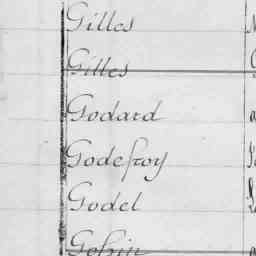 Gilles
Gilles
Godard
Godefroy
Godel
Gohin